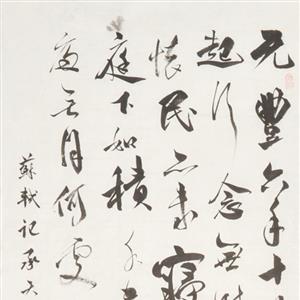 元豐六年十
起行念無
懷民亦未寢
庭下如積水
夜无月何處
蘇軾記承天